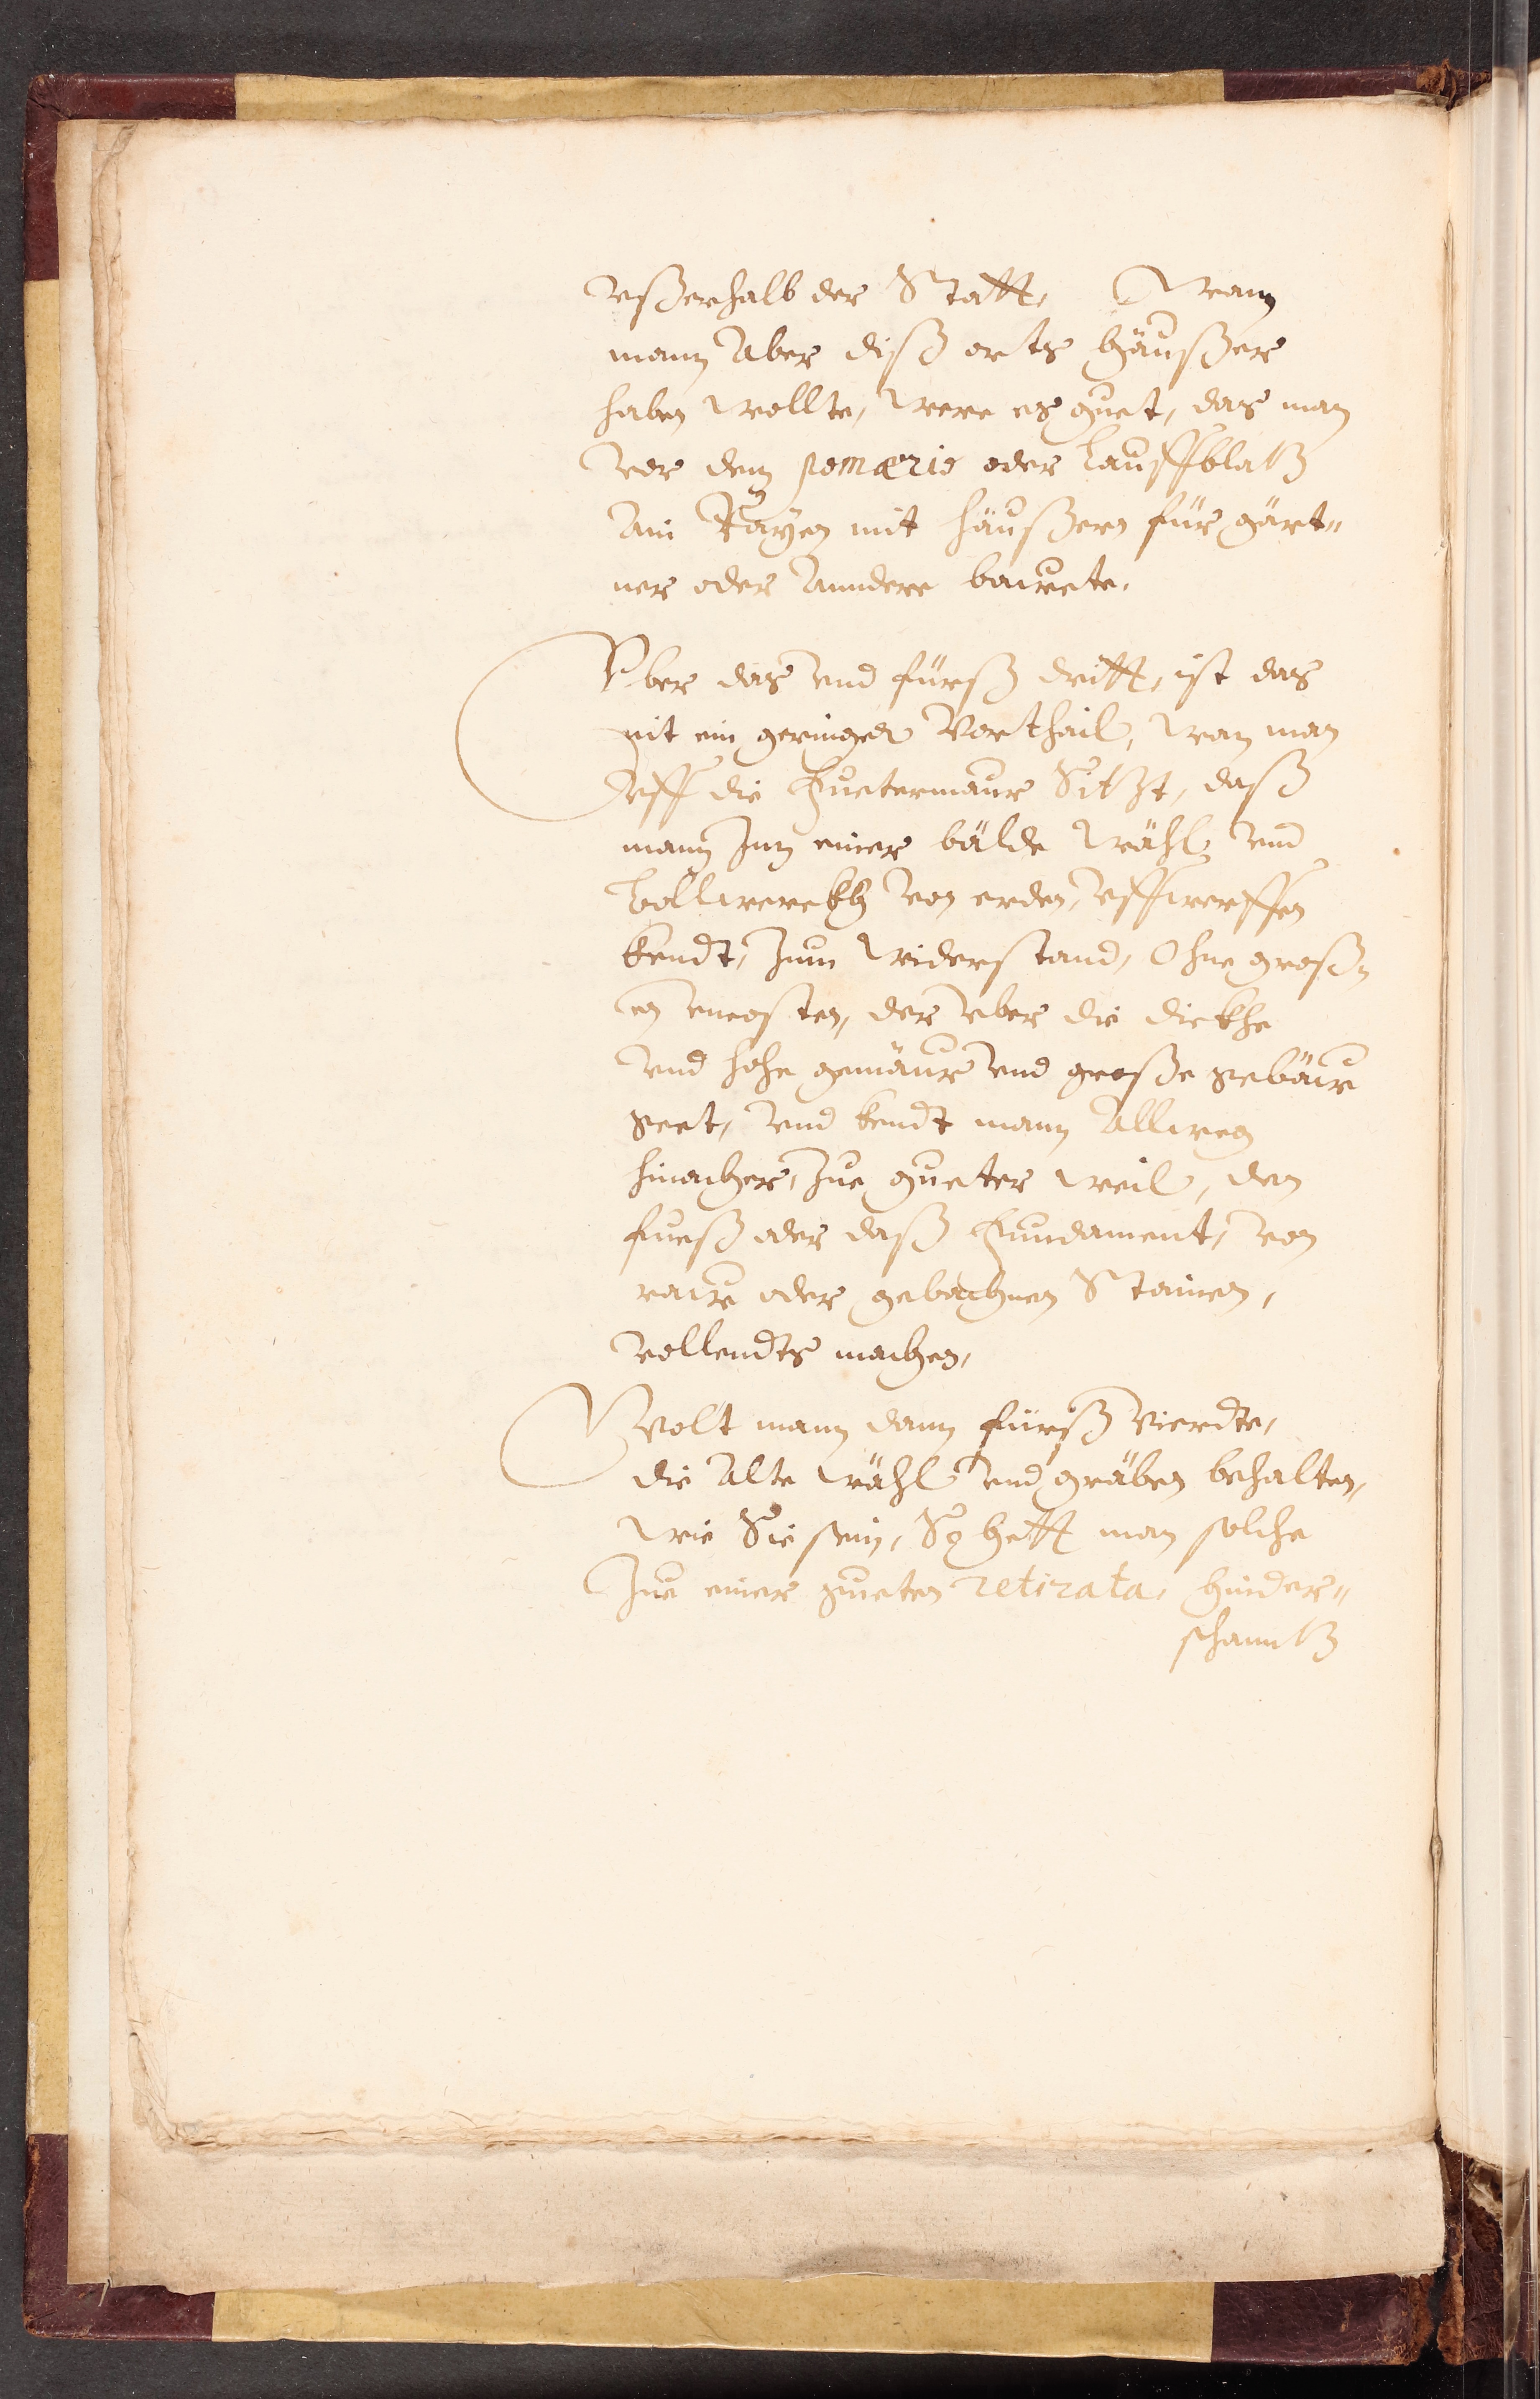 vßerhalb der Statt, Wann
mann Aber diß orts häußer
haben wollte, were es guet, das man
vor dem pomærio oder Lauffblatz
Ain Rayen mit häußern für gärt„
ner oder Anndere bauwete.
Vber das vnd fürß dritt, ist das
nit ein geringer Vorthail, wan man
vff die Fuetermaur Sitzt, daß
mann Inn einer bälde wähl vnd
Bollwerckh von erden, vffwerffen
kendt, zum widerstand, Ohne groß„
en vncosten, der vber die dickhe
vnd hohe gemäur vnd große gebäuw
geet, vnd kendt mann Allweg
hinacher, Zue gueter weil, den
fueß oder daß Fundament, von
rauw oder gebachnen Stainen,
vollendts machen,
Wolt mann dann fürß Vierdte,
die Alte wähl vnd gräben behalten,
wie Sie sein, So hett man solche
Zue einer gueten retirata, hinder„
schanntz